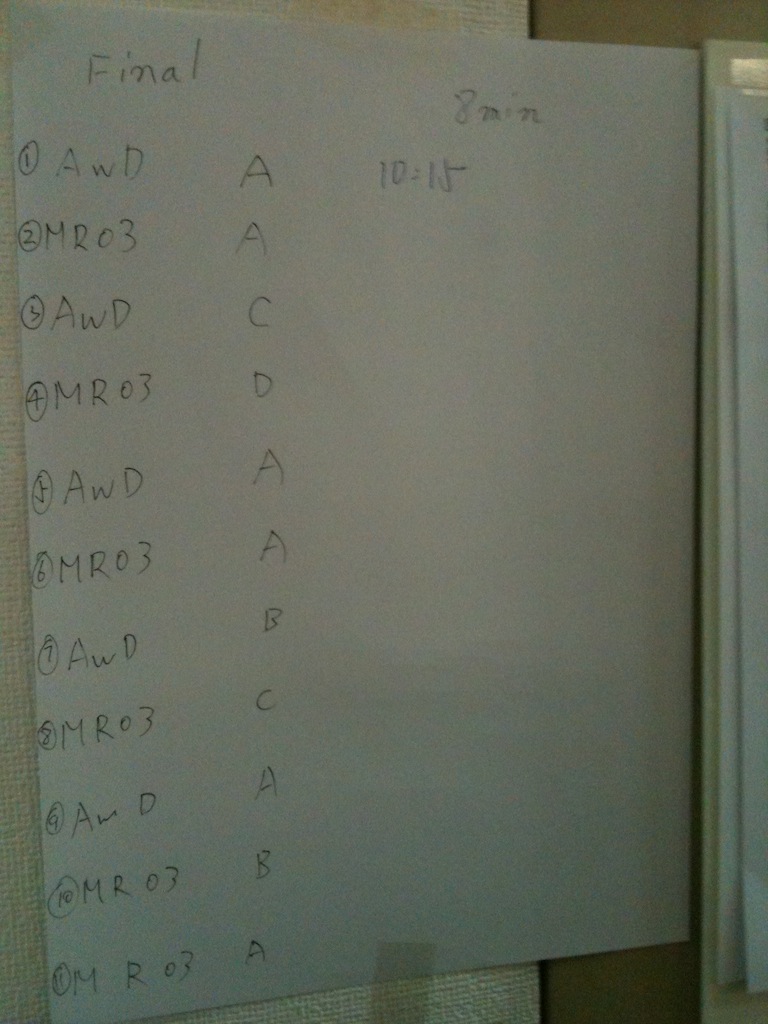 Final
8min
① AWD A 10:15
② MR03 A
③ AWD C
④ MR03 D
⑤ AWD A
⑥ MR03 A
⑦ AWD B
⑧ MR03 C
⑨ AWD A
⑩ MR03 B
⑪ MR03 A